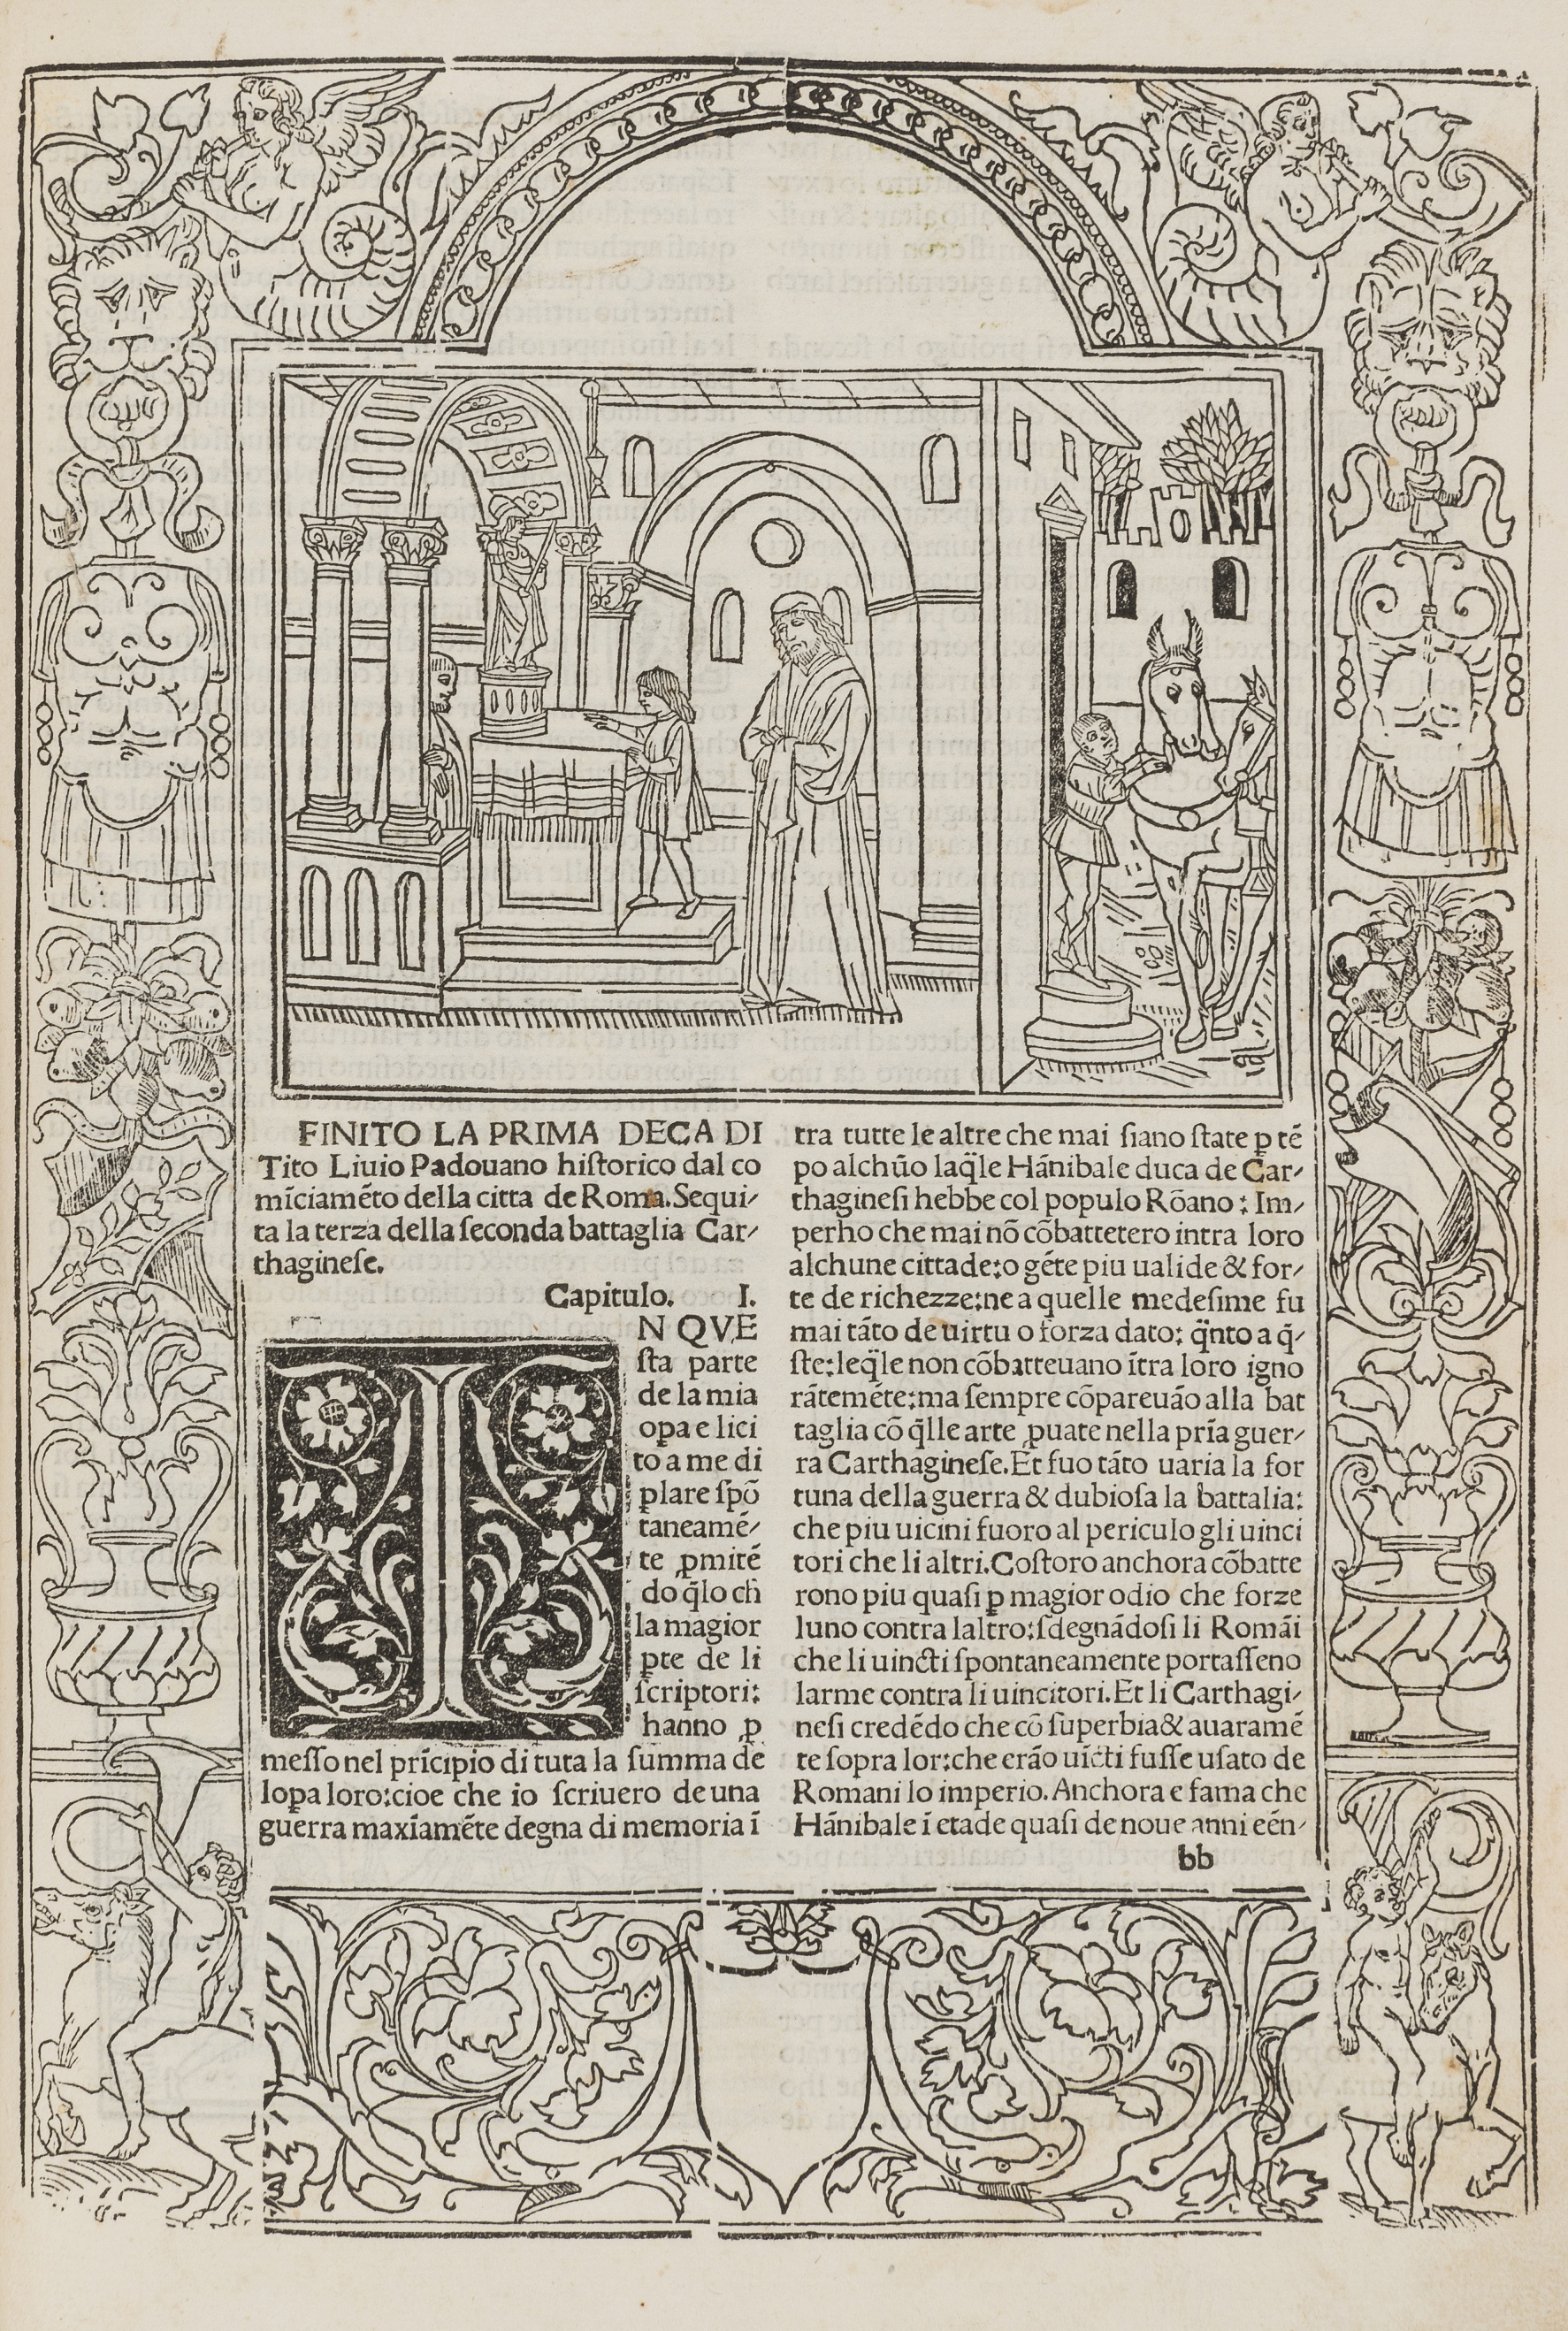 FINITO LA PRIMA DECA DI
Tito Liuio Padouano hiſtorico dal co
mīciamēto della citta de Roma. Sequi⸗
ta la terza della ſeconda battaglia Car⸗
thagineſe.
Capitulo. I.
IN QVE
ſta parte
de la mia
oꝑa e lici
to a me di
ꝑlare ſpō
taneamē⸗
te ꝓmitē
do q̄lo ch̄
la magior
ꝑte de li
ſcriptori:
hanno ꝓ
meſſo nel prīcipio di tuta la ſumma de
loꝑa loro: cioe che io ſcriuero de una
guerra maxīamēte degna di memoria ī
tra tutte le altre che mai ſiano ſtate ꝑ tē
po alchūo laq̄le Hānibale duca de Car⸗
thagineſi hebbe col populo Rōano: Im⸗
perho che mai nō cōbattetero intra loro
alchune cittade: o gēte piu ualide & for⸗
te de richezze: ne a quelle medeſime fu
mai tāto de uirtu o forza dato: q̄nto a q̄⸗
ſte: leq̄le non cōbatteuano ītra loro igno
rātemēte: ma ſempre cōpareuāo alla bat
taglia cō q̄lle arte ꝓuate nella prīa guer⸗
ra Carthagineſe. Et fuo tāto uaria la for
tuna della guerra & dubioſa la battalia:
che piu uicini fuoro al periculo gli uinci
tori che li altri. Coſtoro anchora cōbatte
rono piu quaſi ꝑ magior odio che forze
luno contra laltro: ſdegnādoſi li Romāi
che li uincti ſpontaneamente portaſſeno
larme contra li uincitori. Et li Carthagi⸗
neſi credēdo che cō ſuperbia & auaramē
te ſopra lor: che erāo uīcti fuſſe uſato de
Romani lo imperio. Anchora e fama che
Hānibale ī etade quaſi de noue anni eēn⸗
bb